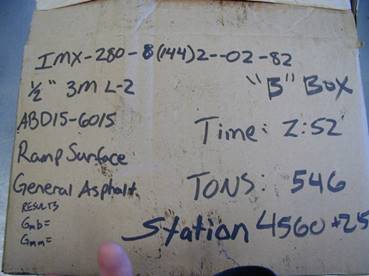 IMX-280-8(144)2--02-82
½" 3M L-2
"B" Box
ABD15-6015
Time: 2:52
Ramp Surface
General Asphalt
TONS: 546
RESULTS
Gmb=
Gmm=
Station 4560+25